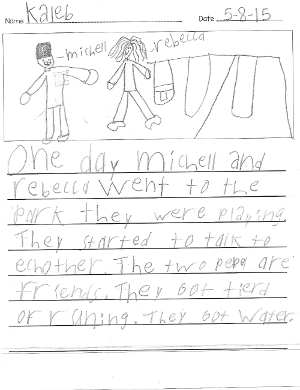 Name Kaleb Date 5-8-15
michell rebecca
One day michell and
rebecca went to the
park they were playing.
They started to talk to
echother. The two are
friends. They got tierd
of runing. They got water.